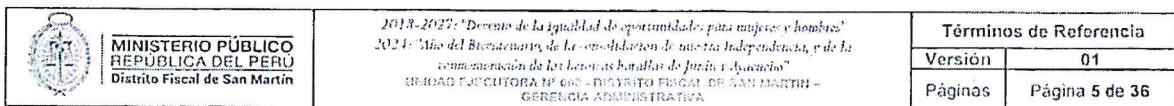 MINISTERIO PÚBLICO
REPÚBLICA DEL PERÚ
Distrito Fiscal de San Martín
2018-2027: "Decenio de la igualdad de oportunidades para mujeres y hombres"
2024: "Año del Bicentenario, de la consolidación de nuestra Independencia, y de la
conmemoración de las heroicas batallas de Junín y Ayacucho"
UNIDAD EJECUTORA Nº - DISTRITO FISCAL DE SAN MARTIN –
GERENCIA ADMINISTRATIVA
Términos de Referencia
Versión 01
Páginas Página 5 de 36